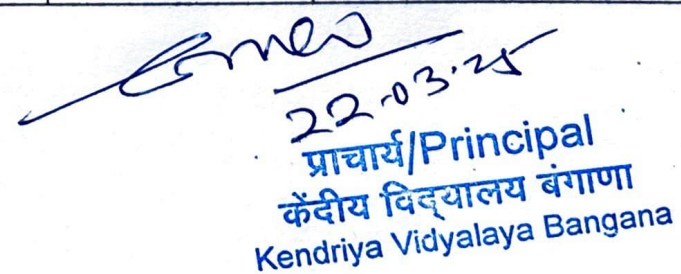 22.03.25
प्राचार्य/Principal
केंदीय विद्यालय बंगाणा
Kendriya Vidyalaya Bangana